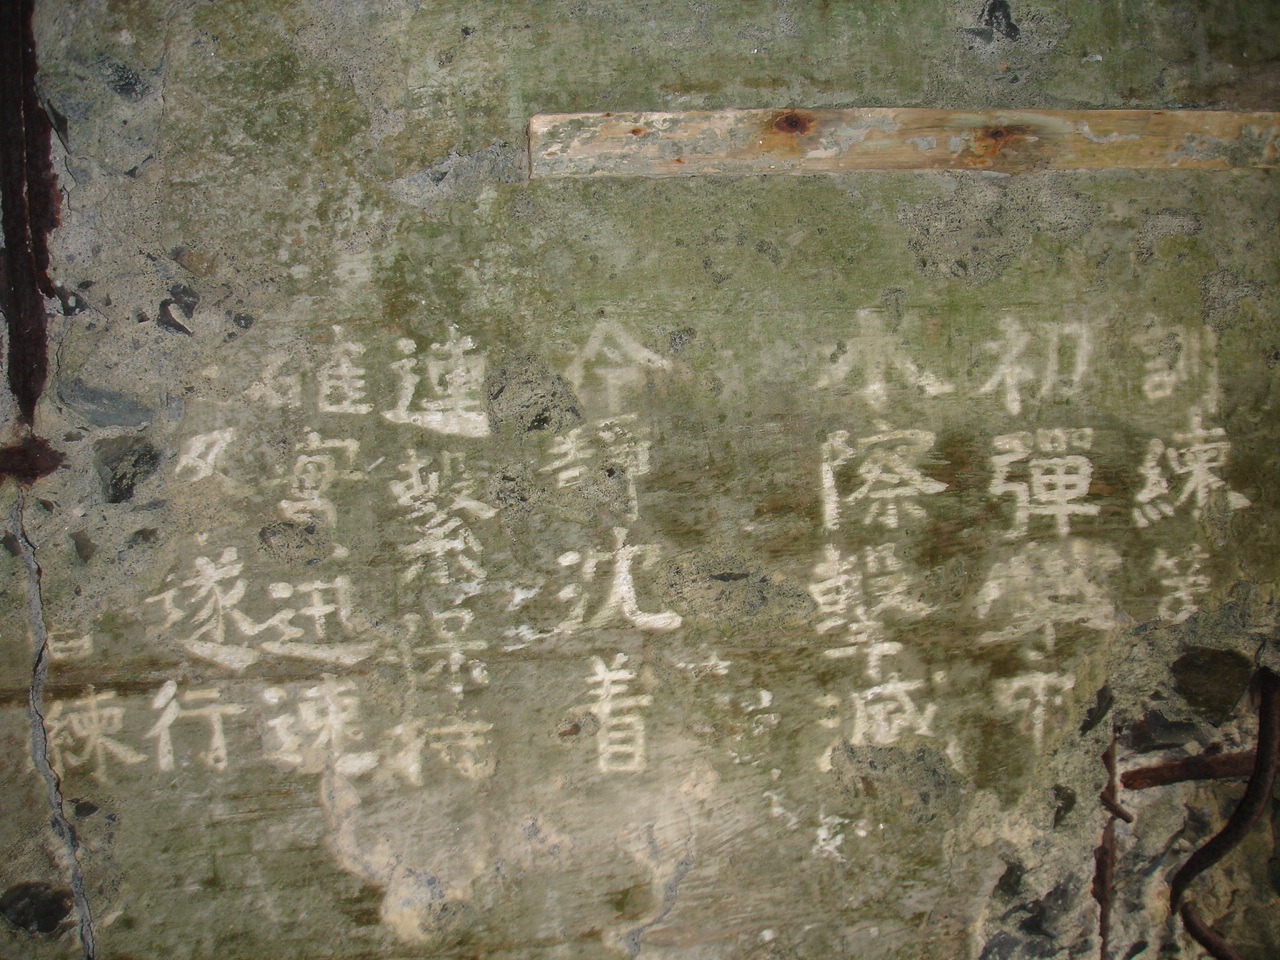 訓練等
初彈
水際擊滅
冷靜沈着
連繫保持
確實迅速
遂行
練